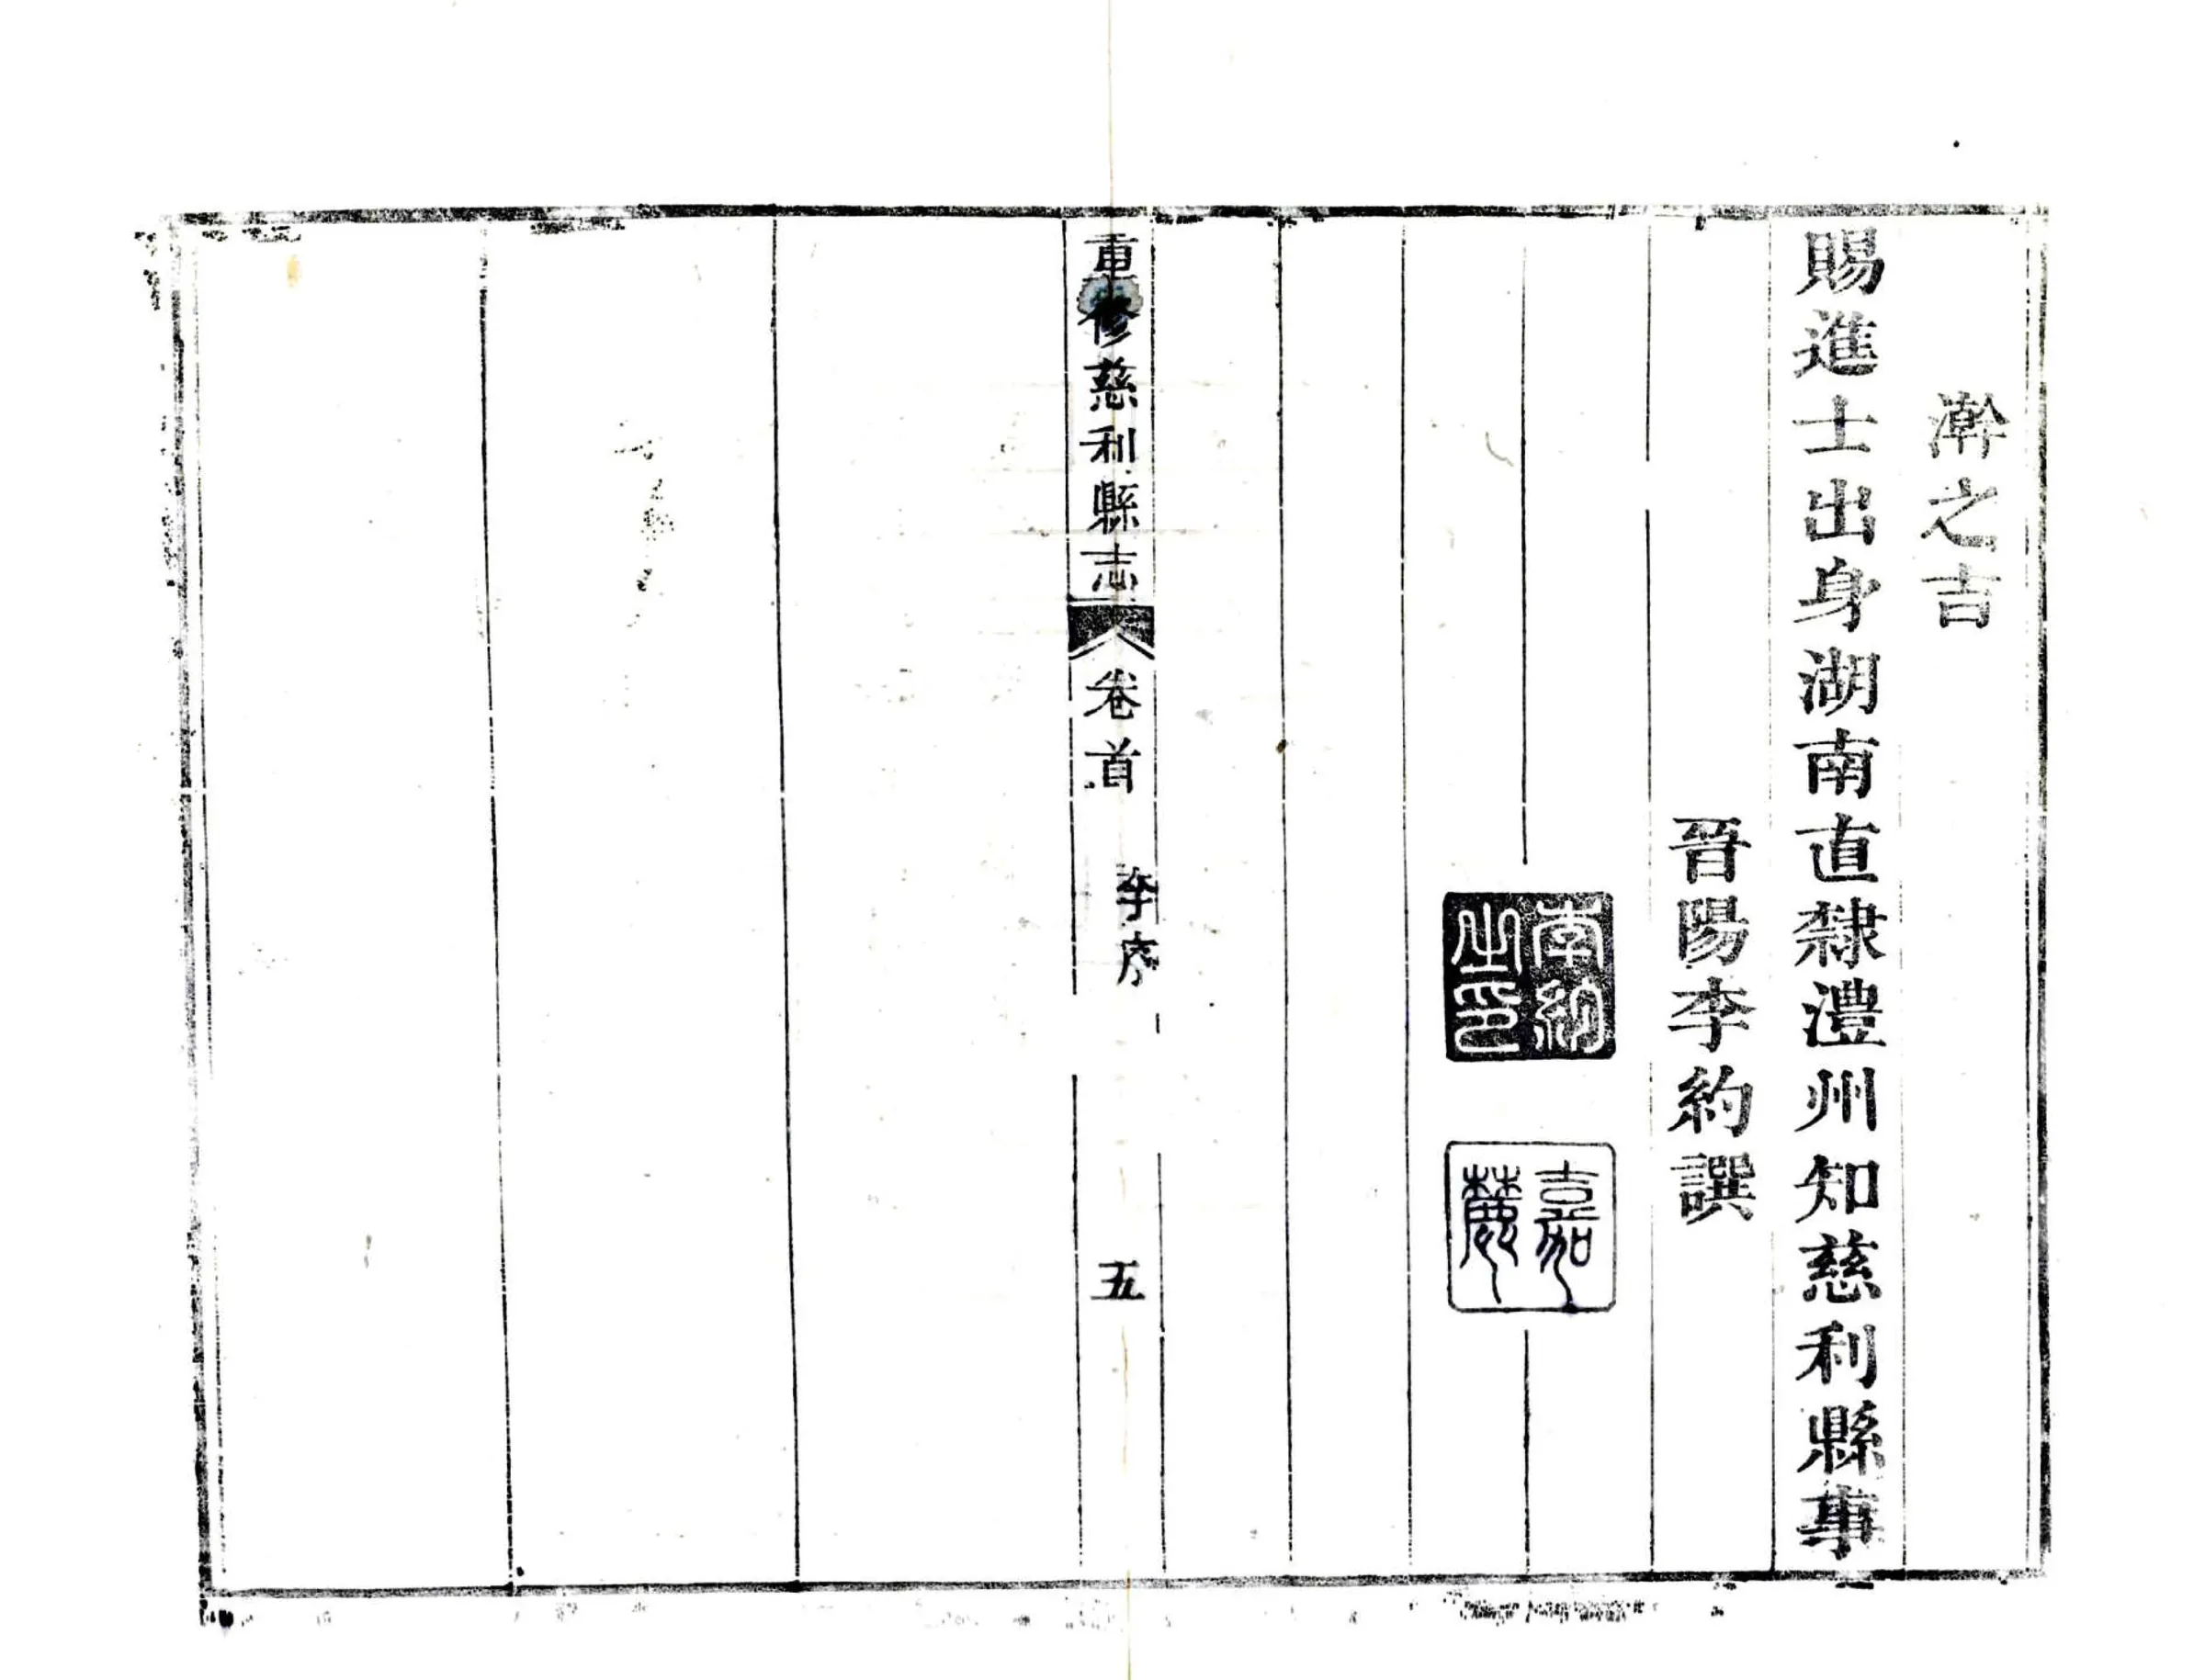 澣之吉
賜進士出身湖南直隸澧州知慈利縣事
晉陽李約譔
李約之印
嘉麓
重修慈利縣志 卷首 李序 五